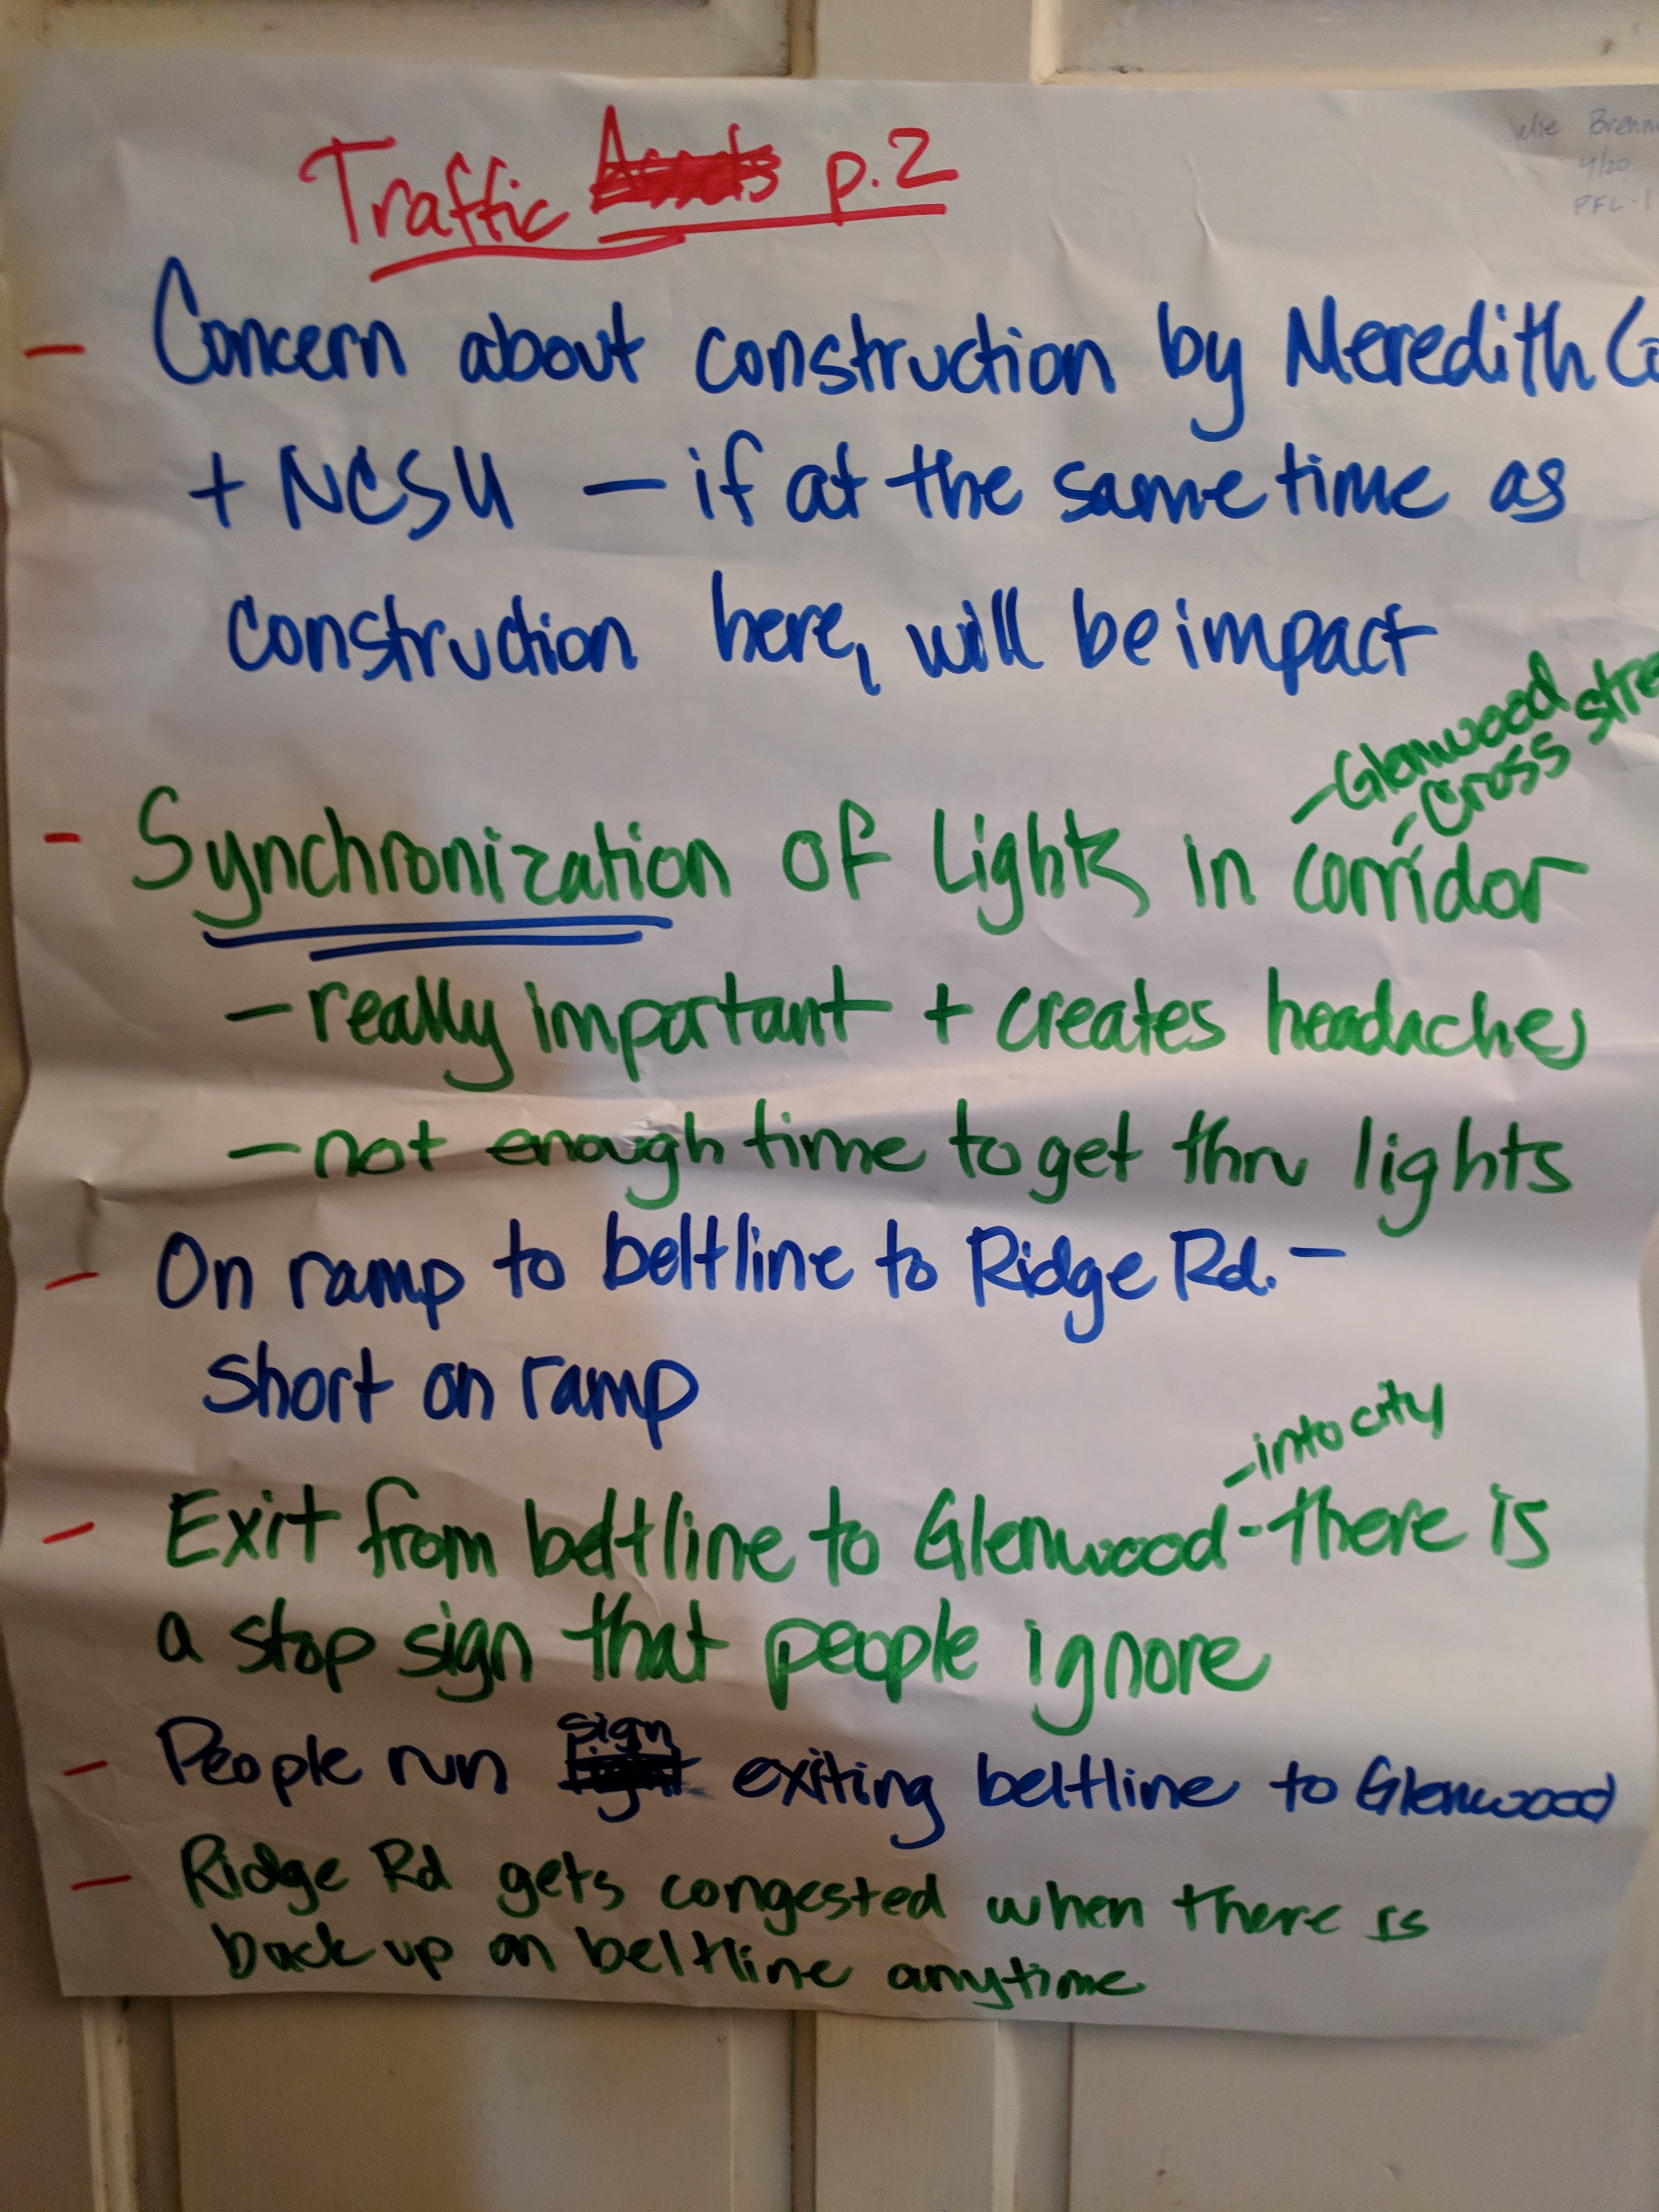 Traffic p.2
Brenn
4/20
PFL-1
- Concern about construction by Meredith Co
+ NCSU - if at the same time as
construction here, will be impact
- Glenwood
- Cross stre
- Synchronization of Lights in corridor
- really important + creates headaches
- not enough time to get thru lights
- On ramp to beltline to Ridge Rd. -
short on ramp
- into city
- Exit from beltline to Glenwood - there is
a stop sign that people ignore
- People run sign exiting beltline to Glenwood
- Ridge Rd gets congested when there is
back up on beltline anytime